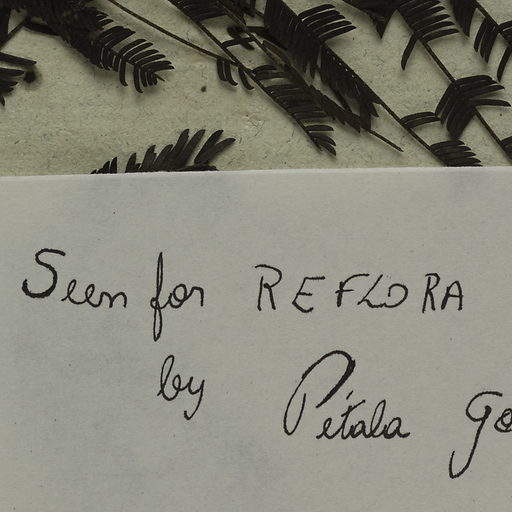 Seen for REFLORA
by Pétala Go